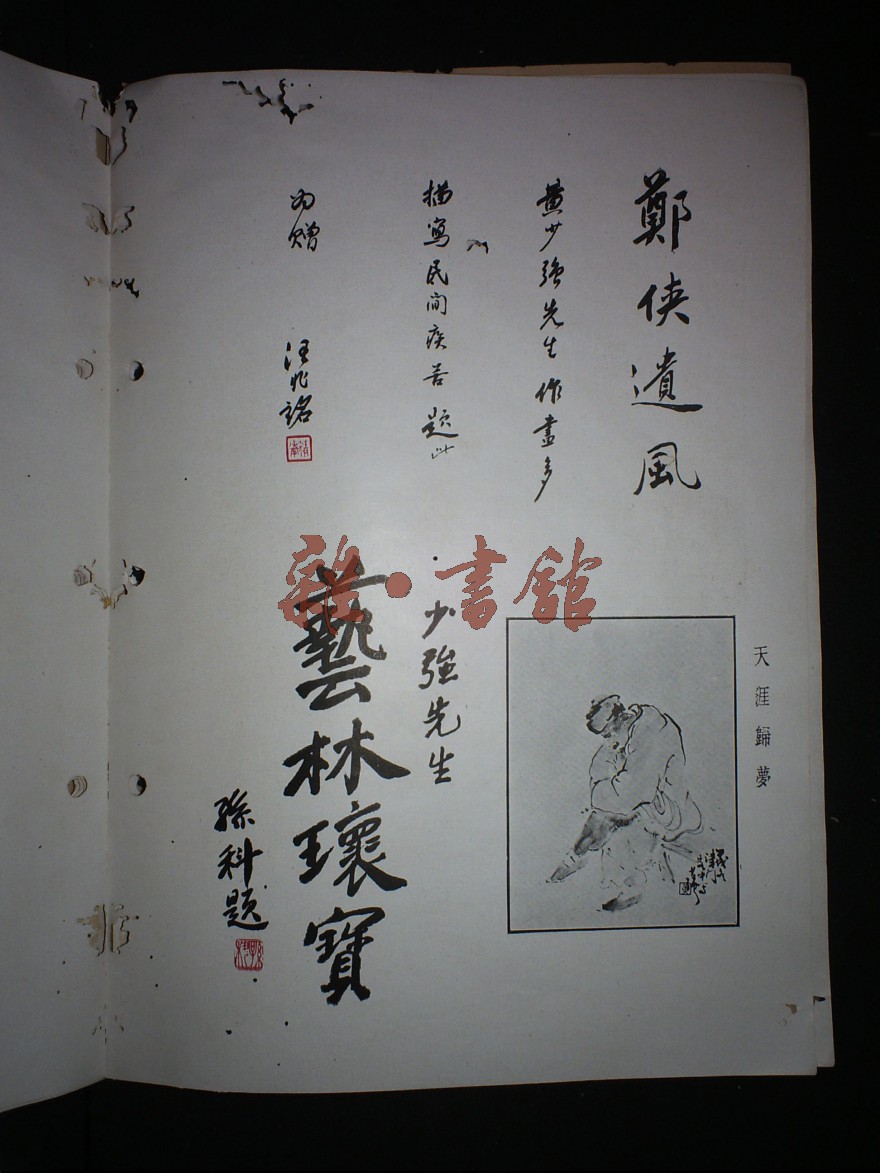 鄭俠遺風
黃少強先生作畫多
描寫民間疾苦題此
為贈
汪兆銘
天涯歸夢
少強先生
藝林瓌寶
孫科題
雜·書館